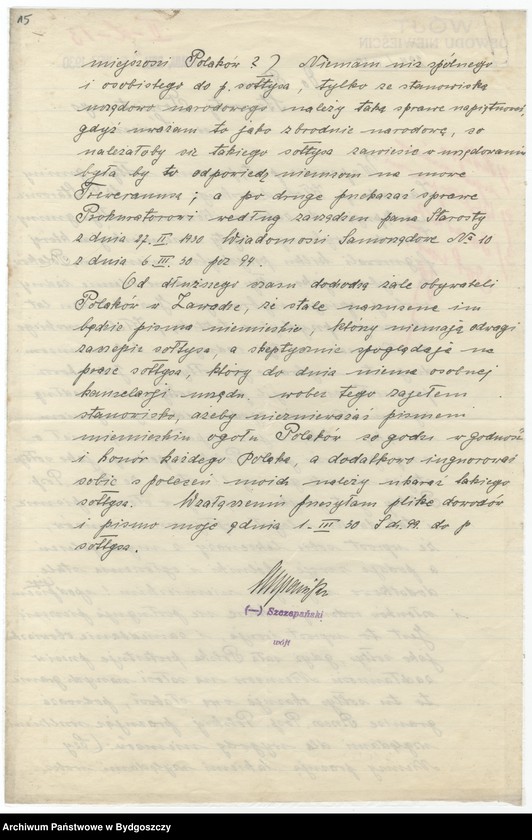 15
miejscości Polaków ?) Niemam nic spólnego
i osobistego do p. sołtysa, tylko ze stanowiska
urzędowo narodowego należy taką sprawę napiętnować
gdyż uważam to jako zbrodnię narodową, co
należałoby też takiego sołtysa zawiesić w urzędowaniu
była by to odpowiedź niemcom na mowę
Treveranusa; a po drugie przekazać sprawę
Prokuratorowi według zarządzeń pana Starosty
z dnia 27. II 1930 Wiadomości Samorządowe № 10
z dnia 6. III. 30 poz 94.
Od dłuższego czasu dochodzą żale obywateli
Polaków w Zawadce, że stale narzucane im
będzie pisma niemieckie, który niemają odwagi
zaczepić sołtysa, a skeptycznie spoglądają na
pracę sołtysa, który do dnia niema osobnej
kancelarji urzędu, wobec tego zająłem
stanowisko, ażeby nieznieważać pismem
niemieckim ogołu Polaków co godzi w godność
i honor każdego Polaka, a dodatkowo ingnorować
sobie z poleceń moich należy ukarać takiego
sołtysa. Wzałączeniu przesyłam plikę dowodów
i pismo moje zdnia 1. III 30 L.dz. 99. do p
sołtysa.
(—) Szczepański
wójt
Archiwum Państwowe w Bydgoszczy